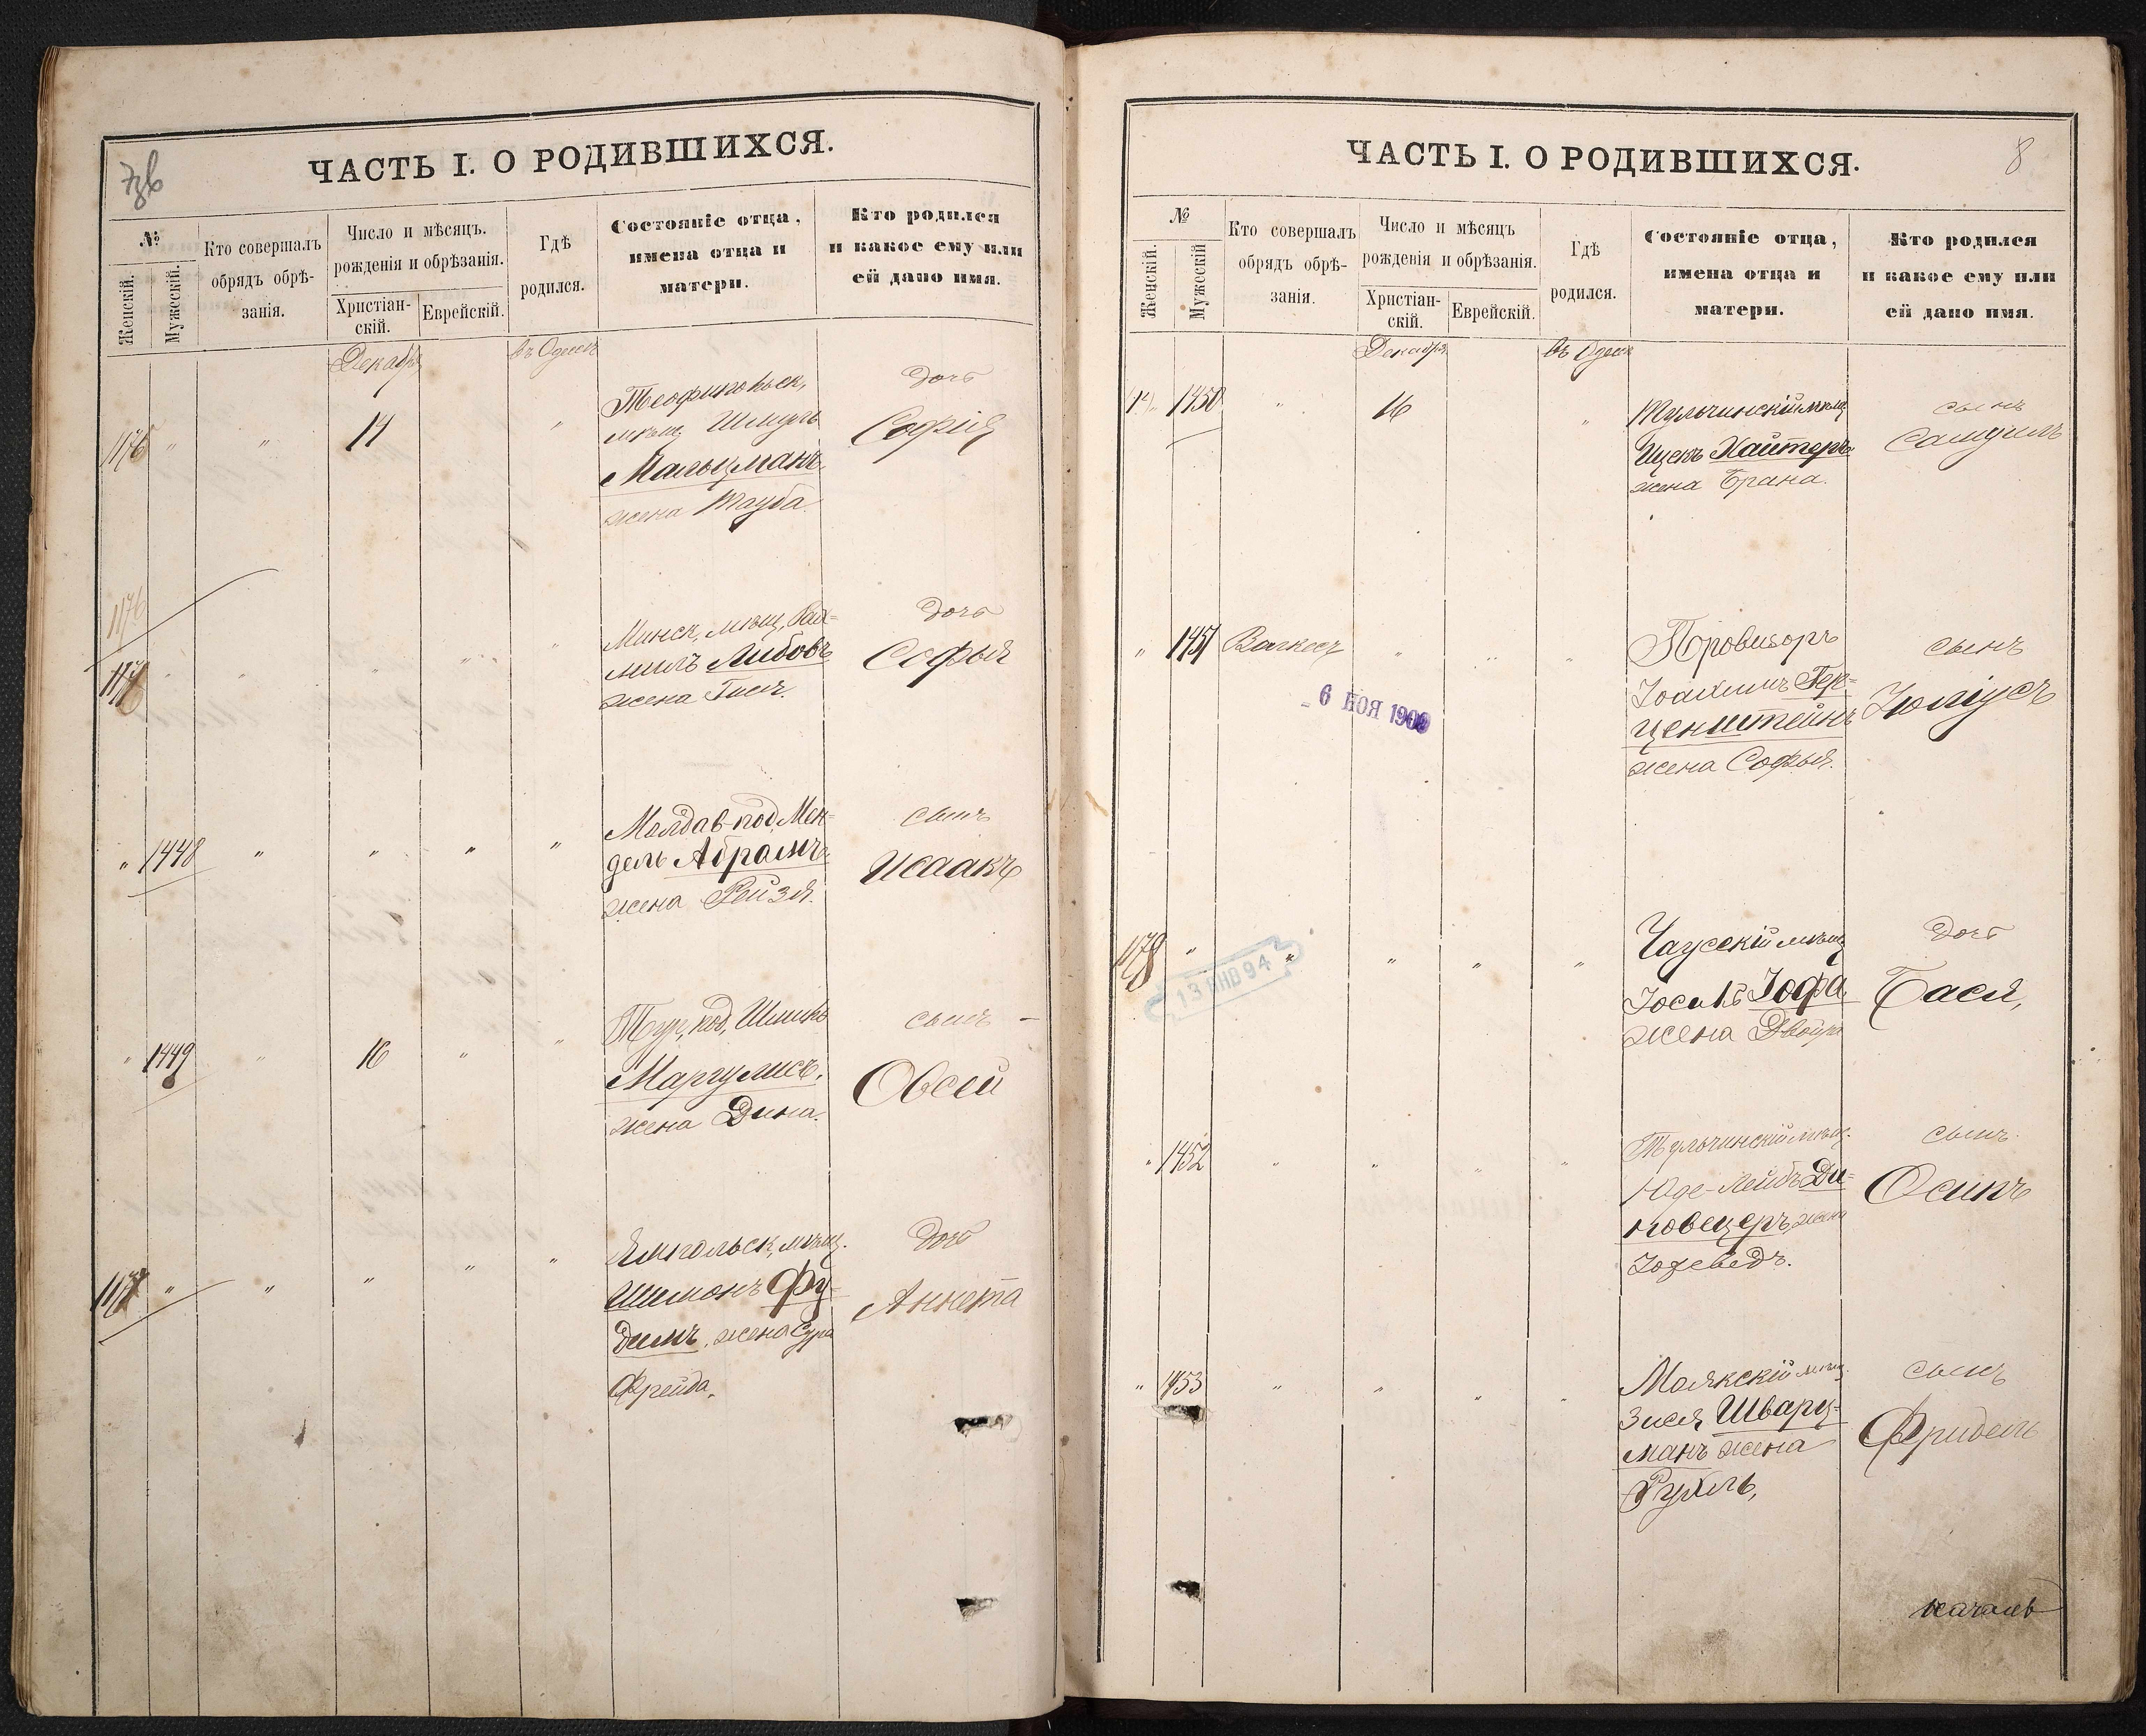 7зв
ЧАСТЬ I. О РОДИВШИХСЯ.
№
Женскій.
Мужескій.
Кто совершалъ
обрядъ обрѣ-
занія.
Число и мѣсяцъ.
рожденія и обрѣзанія.
Христіан-
скій.
Еврейскій.
Гдѣ
родился.
Состояніе отца,
имена отца и
матери.
Кто родился
и какое ему или
ей дано имя.
Декабря
въ Одессѣ
1176 " " 14 "
Теофипольск,
мѣщ Шмуль
Мальцманъ
жена Тауба
дочь
Софія
1176
Минск, мѣщ, Рах-
миль Либовъ
жена Гися.
дочь
Софья
" 1448 " " " "
Молдав-под, Мен-
дель Абрамъ
жена Рейзя.
сынъ
Исаакъ
" 1449 " 16 " "
Тур, под, Шлика
Маргулисъ,
жена Дина.
сынъ –
Овсей
Ямпольск, мѣщ.
Шимонъ Фу-
димъ, жена Сура
Фрейда,
дочь
Аннета
ЧАСТЬ I. О РОДИВШИХСЯ.
8
№
Женскій.
Мужескій
Кто совершалъ
обрядъ обрѣ-
занія.
Число и мѣсяцъ
рожденія и обрѣзанія.
Христіан-
скій.
Еврейскій.
Гдѣ
родился.
Состояніе отца,
имена отца и
матери.
Кто родился
и какое ему или
ей дано имя.
Декабря
въ Одессѣ
1450 " 16 "
Тульчинскій мѣщ
Ицекъ Хайтеръ
жена Брана.
сынъ
Самуилъ
" 1451 " " "
6 НОЯ 1909
Провизоръ
Іоахимъ Гер-
ценштейнъ
жена Софья.
сынъ
Юліусъ
1179 " " " " "
13 ЯНВ 94
Чаусскій мѣщ
Іосель Іофа
жена Двойра
дочь
Бася,
" 1452 " " " "
Тульчинскій мѣщ.
Юде-Лейбъ Ди-
новецеръ, жена
Іохеведъ.
сынъ
Осипъ
" 1453 " " " "
Маякскій мѣщ.
Зися Шварц-
манъ жена
Рухль,
сынъ
Фридель